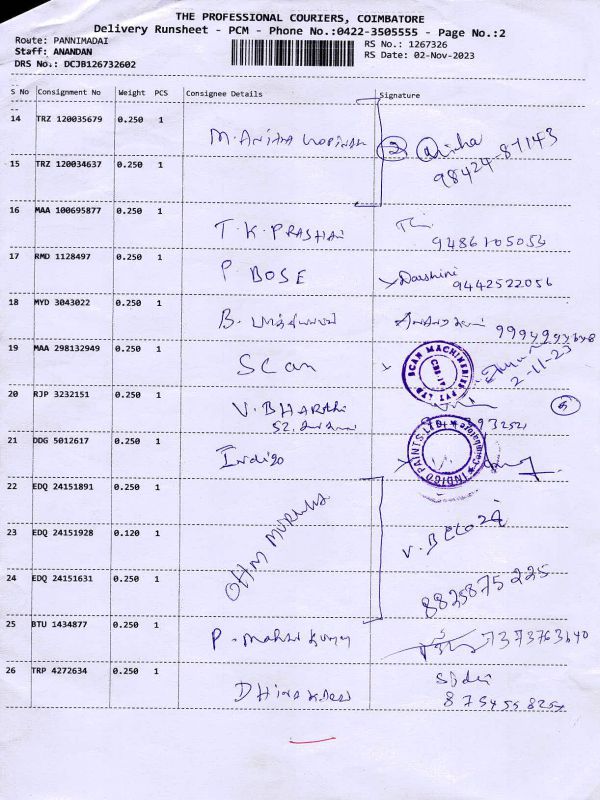 THE PROFESSIONAL COURIERS, COIMBATORE
Delivery Runsheet - PCM - Phone No.:0422-3505555 - Page No.:2
Route: PANNIMADAI
RS No.: 1267326
Staff: ANANDAN
RS Date: 02-Nov-2023
DRS No.: DCJB126732602
S No Consignment No Weight PCS Consignee Details Signature
14 TRZ 120035679 0.250 1
M. Anitha
98424-81143
15 TRZ 120034637 0.250 1
16 MAA 100695877 0.250 1
T. K. PRASHAN
9486105054
17 RMD 1128497 0.250 1
P BOSE Darshini
9442522056
18 MYD 3043022 0.250 1
B.
19 MAA 298132949 0.250 1
Scan
SCAN MACHINERIES PVT LTD
CBE-17
2-11-23
20 RJP 3232151 0.250 1
V. BHARATHI
52,
21 DDG 5012617 0.250 1
Indigo
INDIGO PAINTS LTD
Coimbatore
22 EDQ 24151891 0.250 1
OHM MURUGA
23 EDQ 24151928 0.120 1
V. B
24 EDQ 24151631 0.250 1
8825875225
25 BTU 1434877 0.250 1
P.
7373763640
26 TRP 4272634 0.250 1